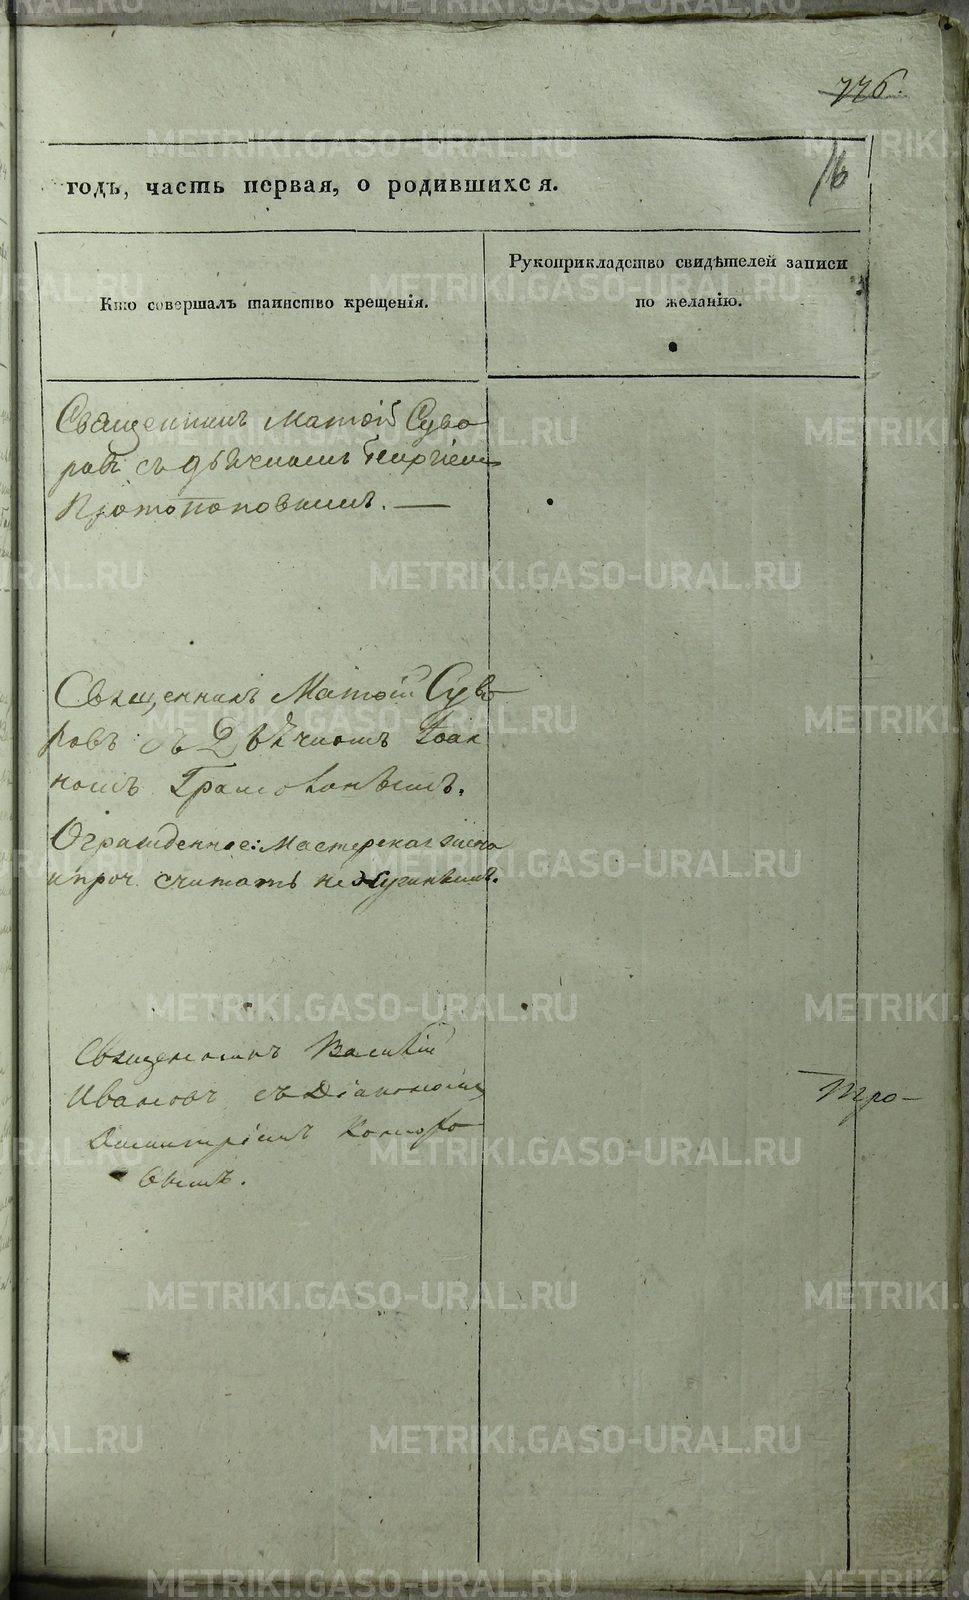 776.
16
годъ, часть первая, о родившихся.
Кто совершалъ таинство крещенія.
Рукоприкладство свидѣтелей записи
по желанію.
Священникъ Матѳій Суво
ровъ съ дьячкомъ Георгіем
Протопоповымъ. —
Священникъ Матѳій Суво
ровъ съ Дьячкомъ Іоан
номъ
Огражденное:
и проч. считать не
Священникъ Василій
Ивановъ съ Діакономъ
Димитріемъ
вымъ.
Тро-
METRIKI.GASO-URAL.RU